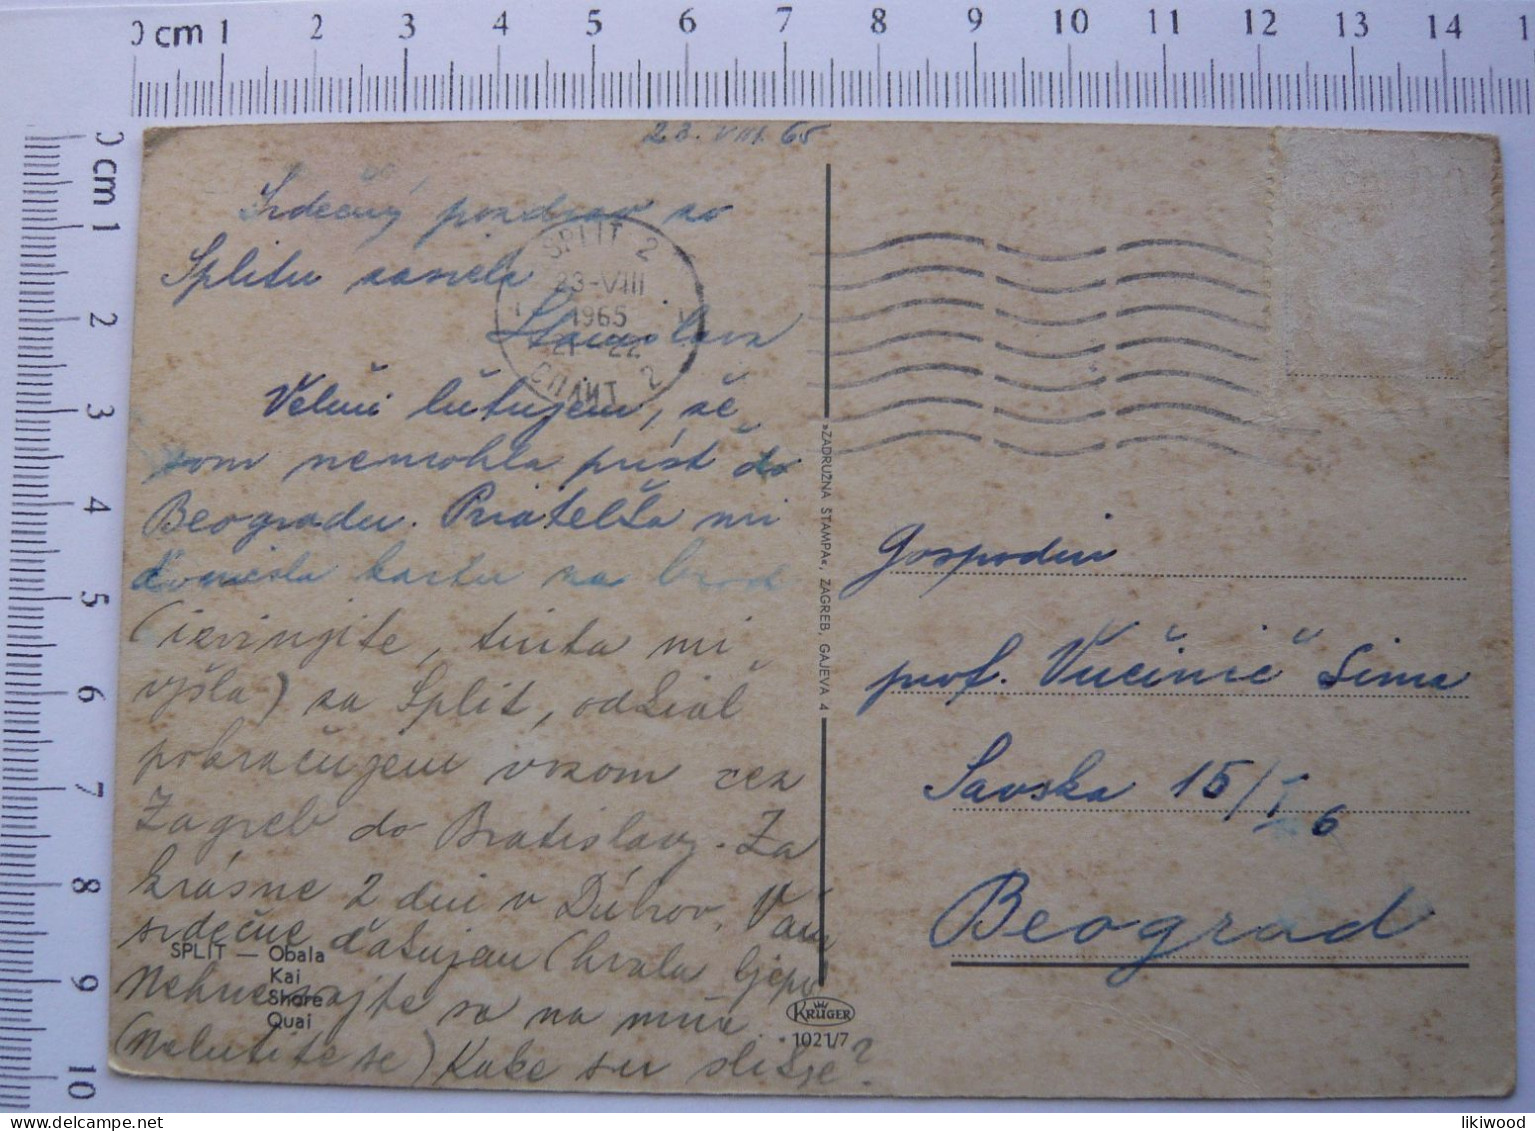 0 cm 1 2 3 4 5 6 7 8 9 10 11 12 13 14
0 cm 1 2 3 4 5 6 7 8 9 10
23. VIII. 65
Srdečný pozdrav zo
Splitu zasiela
SPLIT 2
23-VIII
1965
21-22
СПЛИТ 2
Veľmi ľutujem, že
som nemohla prísť do
Beogradu. Priateľka mi
doniesla kartu na brod
(izvinjite, tinta mi
vyšla) za Split, odkiaľ
pokračujem vozom cez
Zagreb do Bratislavy. Za
krásne 2 dni v Dubrov. Vám
srdečne ďakujem (hvala ljepo
Nehnevajte sa na mňa
(Neljutite se) Kake su slike?
SPLIT — Obala
Kai
Shore
Quai
»ZADRUŽNA ŠTAMPA«, ZAGREB, GAJEVA 4
KRÜGER
1021/7
Gospodin
prof. Vučinić Sima
Savska 15/I 6
Beograd
likiwood